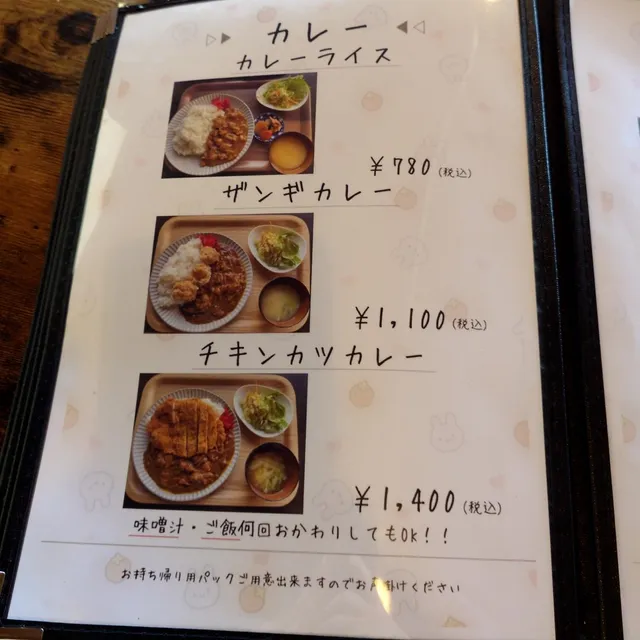 カレー
カレーライス
¥780(税込)
ザンギカレー
¥1,100(税込)
チキンカツカレー
¥1,400(税込)
味噌汁・ご飯何回おかわりしてもOK!!
お持ち帰り用パックご用意出来ますのでお声掛けください